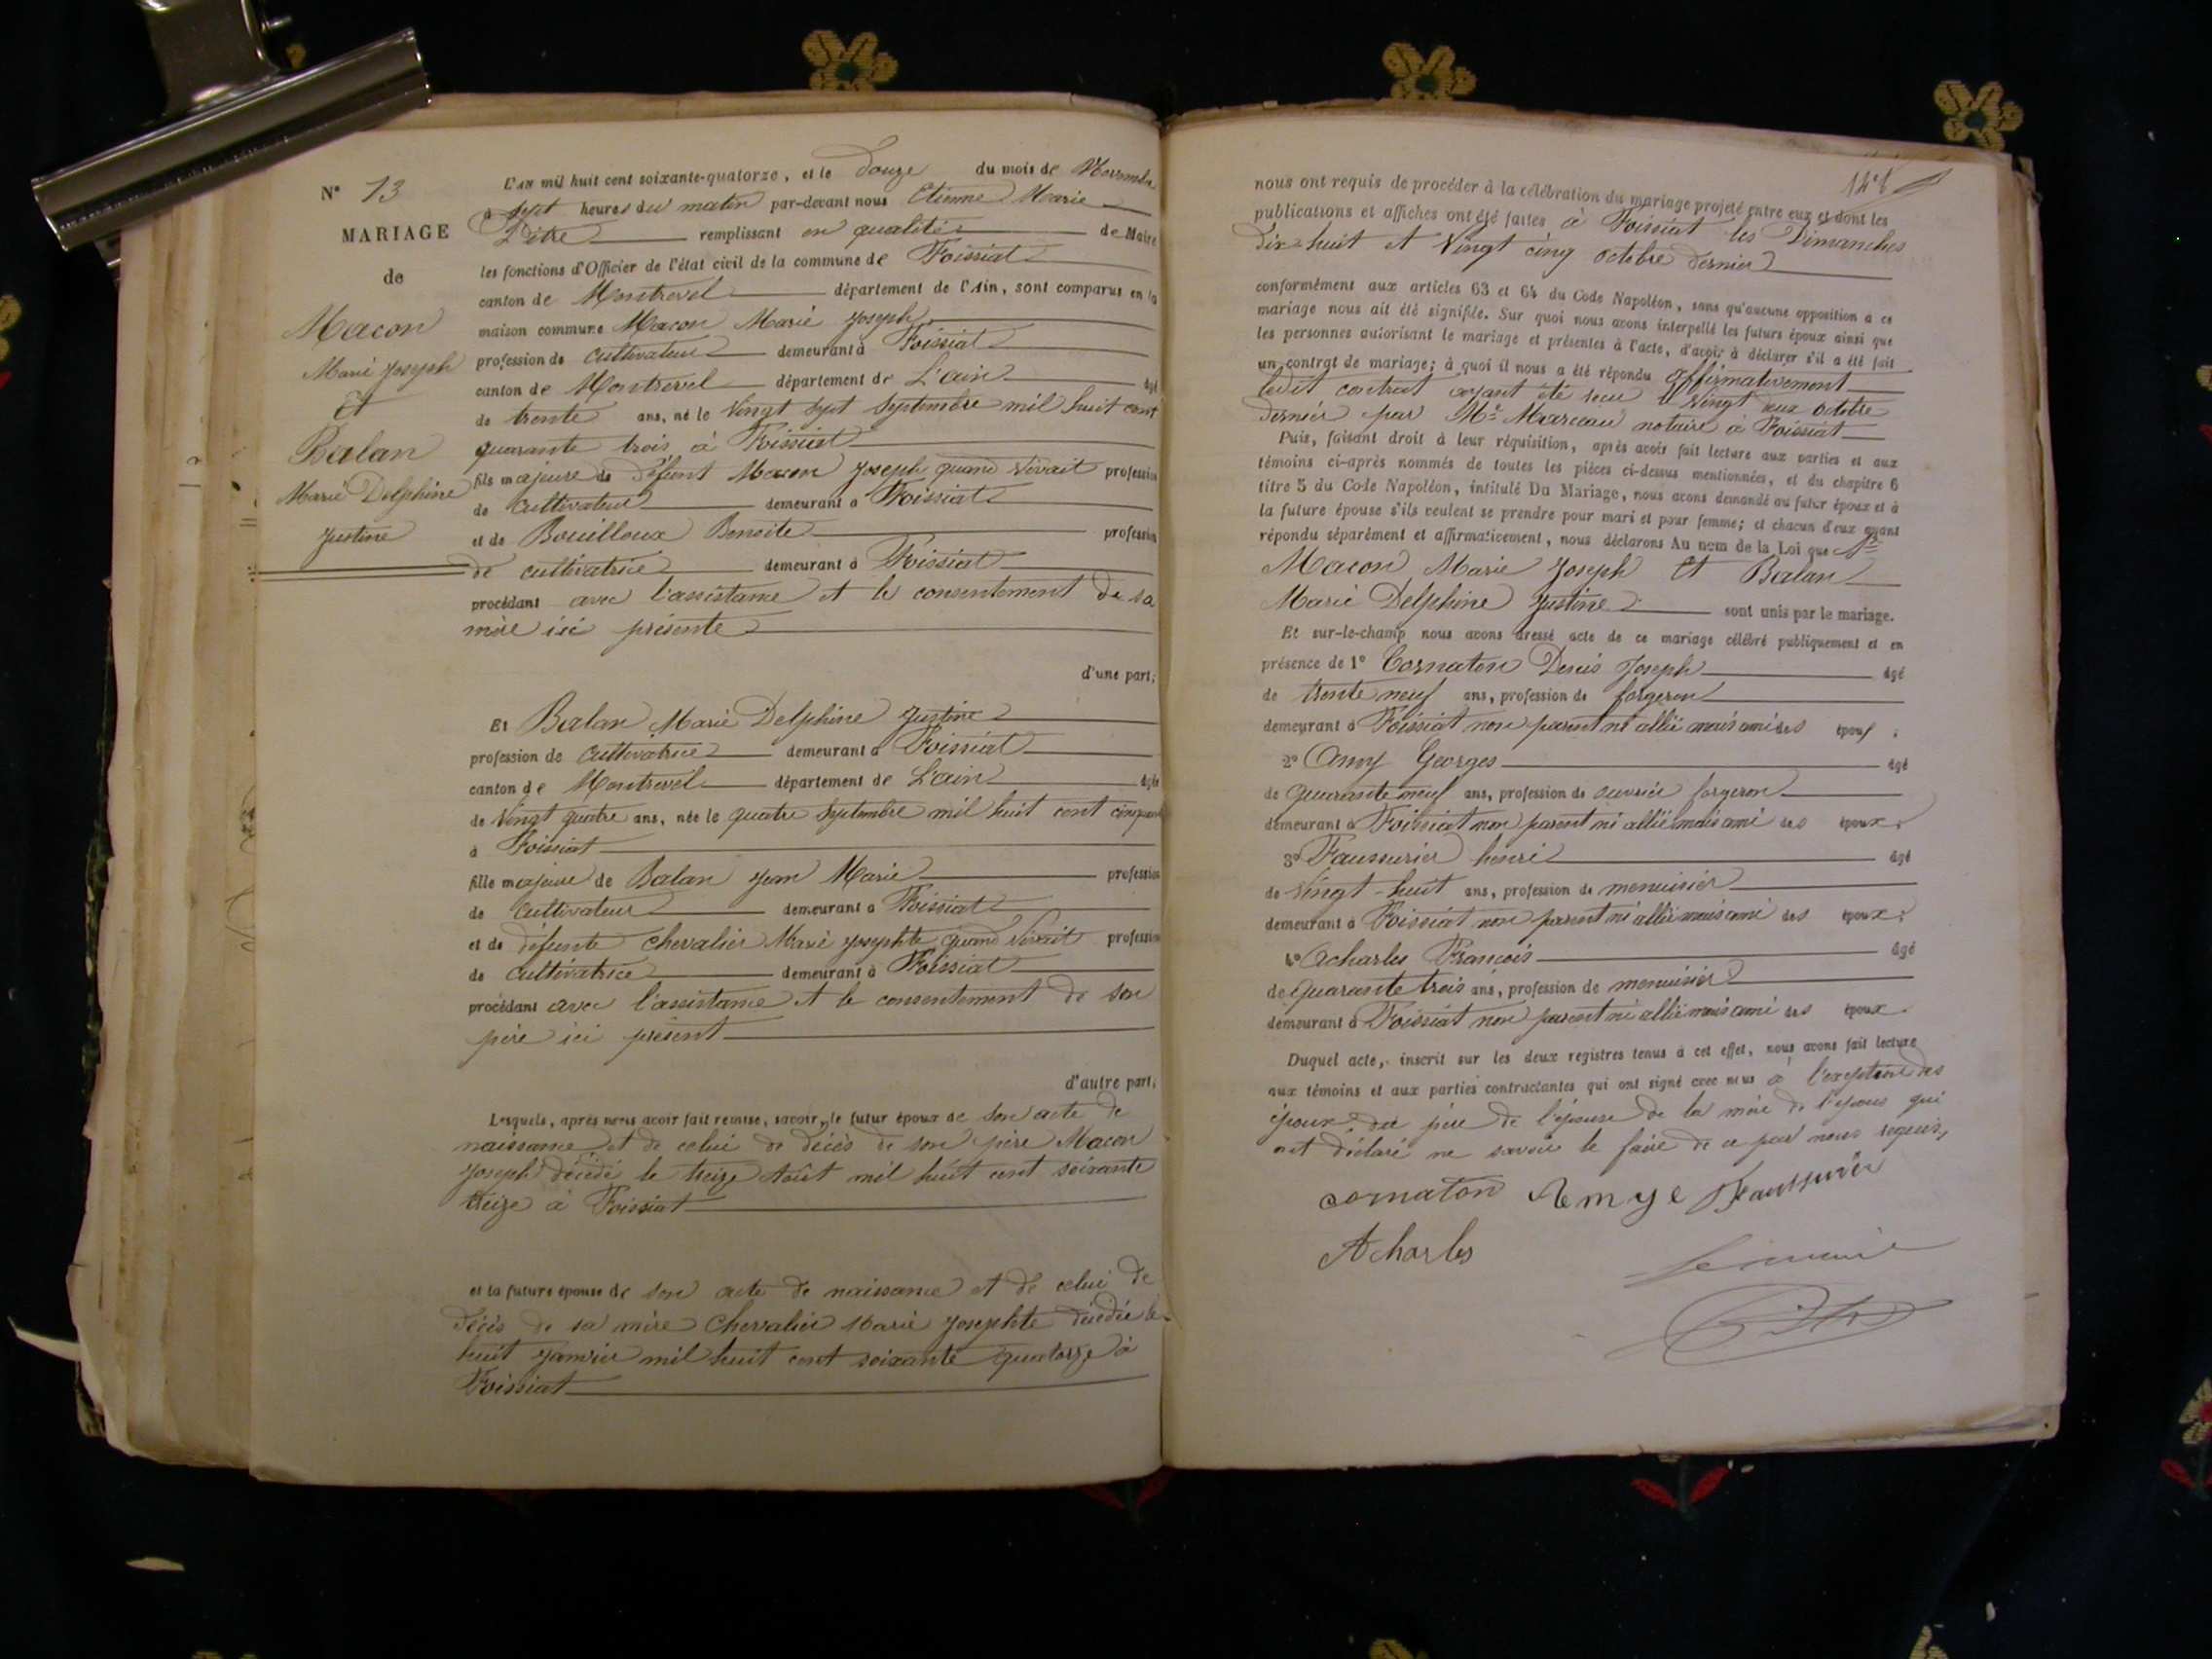 N° 13
MARIAGE
de
Macon
Marie Joseph
Et
Balan
Marie Delphine
Justine
L'AN mil huit cent soixante-quatorze, et le Douze du mois de Novembre
à sept heures du matin par-devant nous Etienne Marie
Pitre remplissant en qualité de Maire
les fonctions d'Officier de l'état civil de la commune de Foissiat
canton de Montrevel département de l'Ain, sont comparus en la
maison commune Macon Marie Joseph
profession de cultivateur demeurant à Foissiat
canton de Montrevel département de L'ain âgé
de trente ans, né le Vingt sept Septembre mil huit cent
quarante trois à Foissiat
fils majeure de défunt Macon Joseph quand vivait profession
de cultivateur demeurant à Foissiat
et de Bouilloux Benoite profession
de cultivatrice demeurant à Foissiat
procédant avec l'assistance et le consentement de sa
mère ici présente
d'une part;
Et Balan Marie Delphine Justine
profession de cultivatrice demeurant à Foissiat
canton de Montrevel département de L'ain âgée
de Vingt quatre ans, née le quatre Septembre mil huit cent cinquante
à Foissiat
fille majeure de Balan Jean Marie profession
de cultivateur demeurant à Foissiat
et de défunte Chevalier Marie Josephte quand vivait profession
de cultivatrice demeurant à Foissiat
procédant avec l'assistance et le consentement de son
père ici présent
d'autre part;
Lesquels, après nous avoir fait remise, savoir, le futur époux de son acte de
naissance et de celui de décès de son père Macon
Joseph décédé le treize Août mil huit cent soixante
treize à Foissiat
et la future épouse de son acte de naissance et de celui de
décès de sa mère Chevalier Marie Josephte décédée le
huit Janvier mil huit cent soixante quatorze à
Foissiat
nous ont requis de procéder à la célébration du mariage projeté entre eux et dont les
publications et affiches ont été faites à Foissiat les Dimanches
Dix-huit et Vingt cinq octobre dernier
conformément aux articles 63 et 64 du Code Napoléon, sans qu'aucune opposition a ce
mariage nous ait été signifiée. Sur quoi nous avons interpellé les futurs époux ainsi que
les personnes autorisant le mariage et présentes à l'acte, d'avoir à déclarer s'il a été fait
un contrat de mariage; à quoi il nous a été répondu affirmativement
ledit contrat ayant été reçu le Vingt deux octobre
dernier par Me Marceau notaire à Foissiat
Puis, faisant droit à leur réquisition, après avoir fait lecture aux parties et aux
témoins ci-après nommés de toutes les pièces ci-dessus mentionnées, et du chapitre 6
titre 5 du Code Napoléon, intitulé Du Mariage, nous avons demandé au futur époux et à
la future épouse s'ils veulent se prendre pour mari et pour femme; et chacun d'eux ayant
répondu séparément et affirmativement, nous déclarons Au nom de la Loi que
Macon Marie Joseph Et Balan
Marie Delphine Justine sont unis par le mariage.
Et sur-le-champ nous avons dressé acte de ce mariage célébré publiquement et en
présence de 1° Cornaton Denis Joseph âgé
de trente neuf ans, profession de forgeron
demeurant à Foissiat non parent ni allié mais ami des époux;
2° Amy Georges âgé
de quarante neuf ans, profession de ouvrier forgeron
demeurant à Foissiat non parent ni allié mais ami des époux;
3° Faussurier henri âgé
de Vingt-huit ans, profession de menuisier
demeurant à Foissiat non parent ni allié mais ami des époux;
4° Acharles François âgé
de quarante trois ans, profession de menuisier
demeurant à Foissiat non parent ni allié mais ami des époux.
Duquel acte, inscrit sur les deux registres tenus à cet effet, nous avons fait lecture
aux témoins et aux parties contractantes qui ont signé avec nous à l'exception des
époux, du père de l'épouse de la mère de l'époux qui
ont déclaré ne savoir le faire de ce par nous requis,
cornaton Aemye Faussurier
Acharles
Le maire